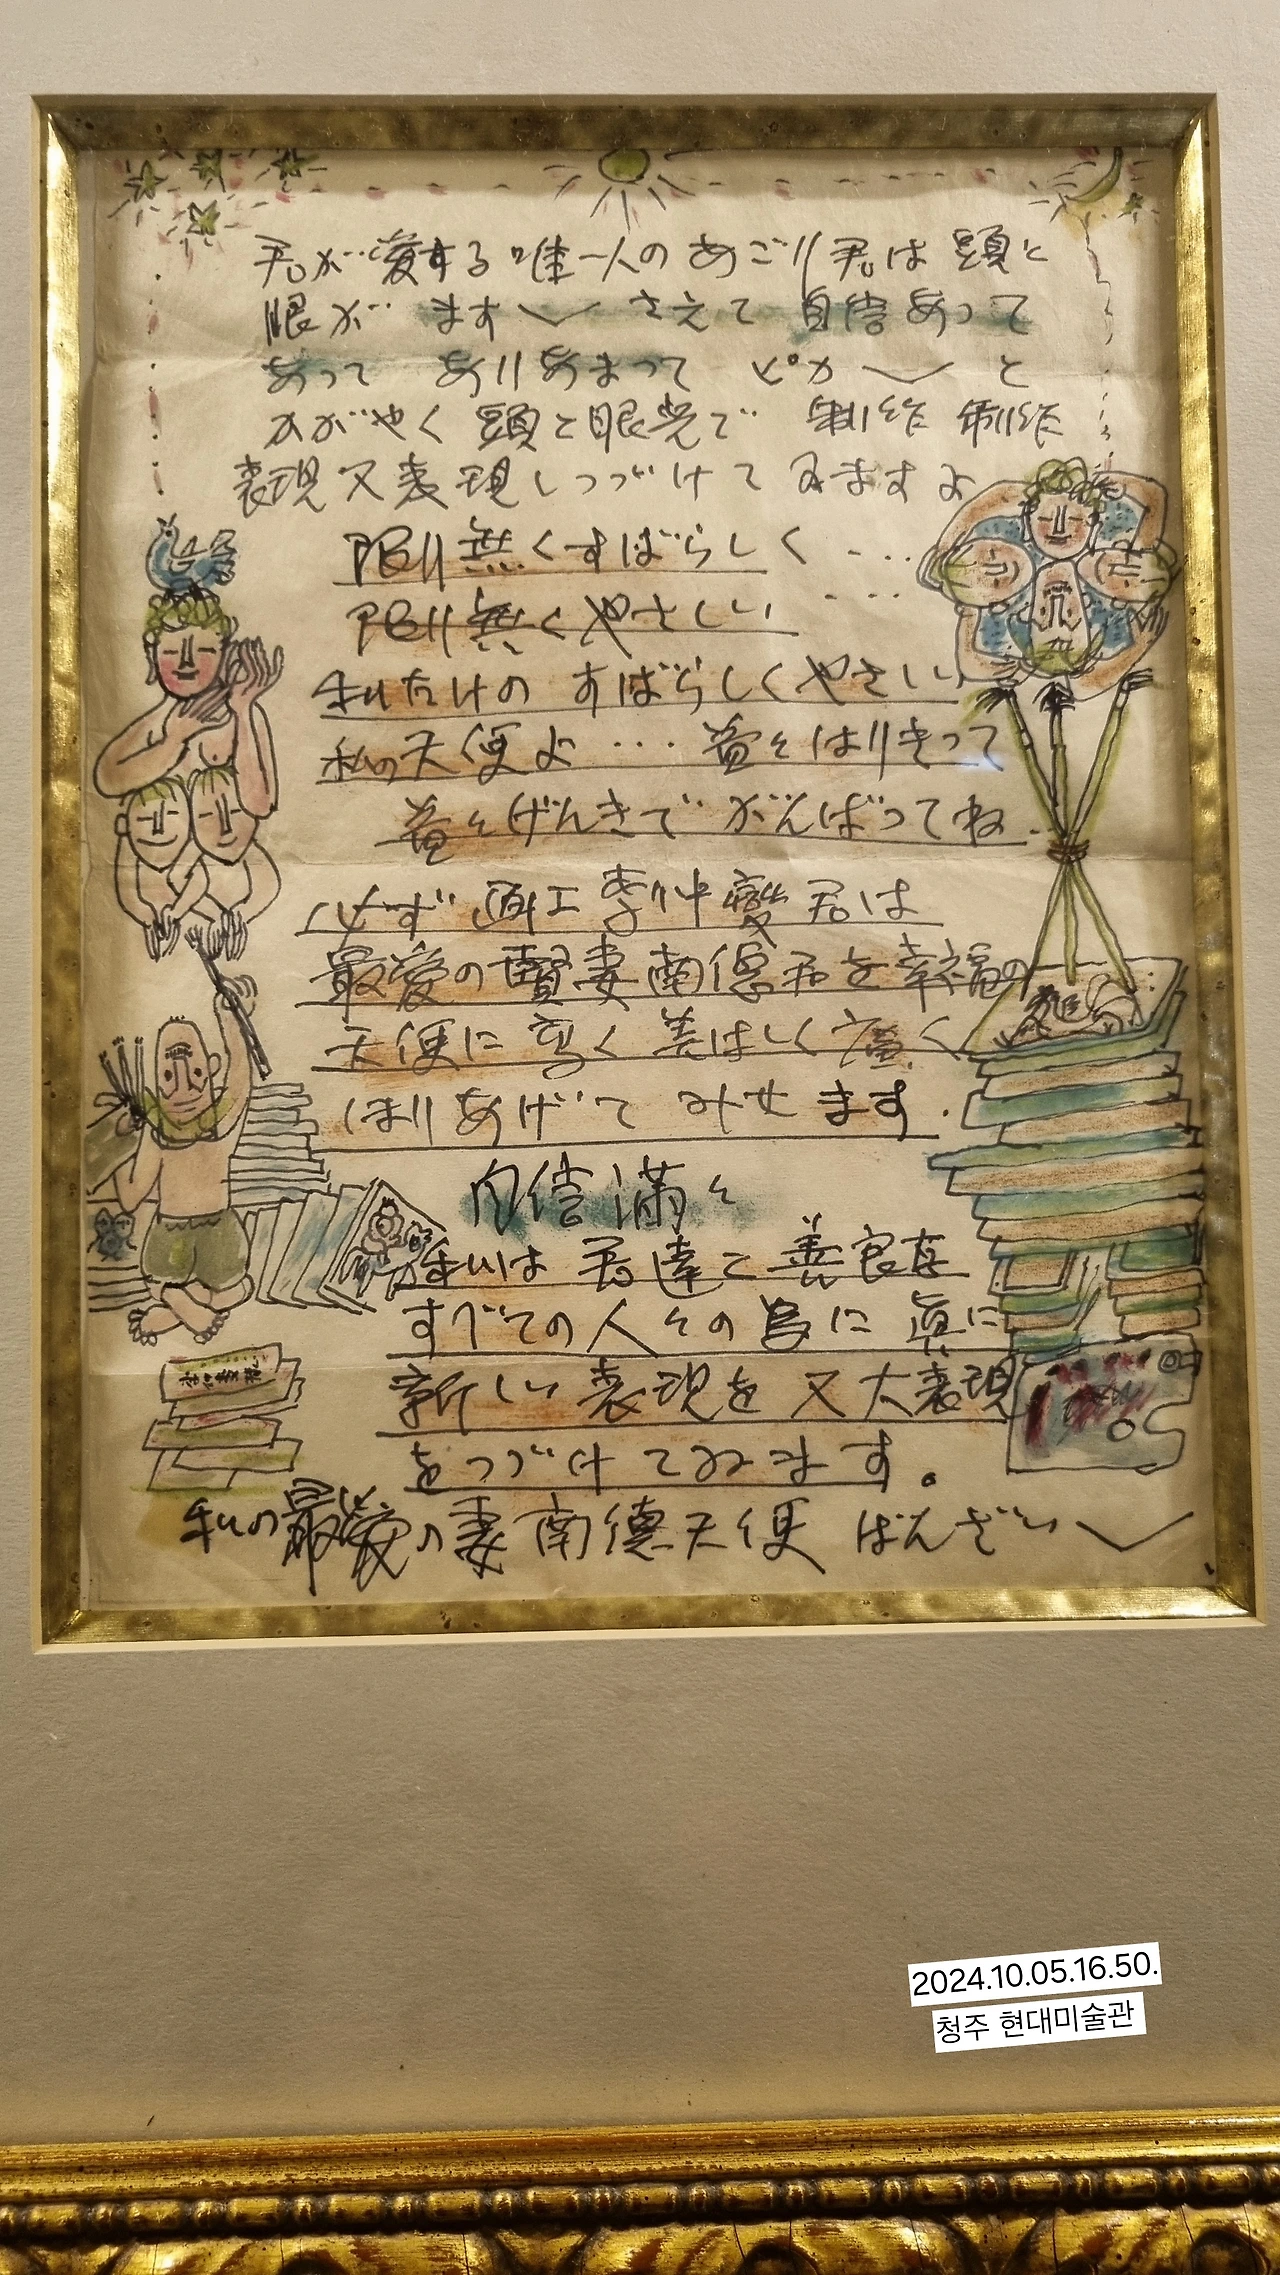 君が愛する唯一人のあごり君は 頭と
眼が ます〱 さえて 自信あって
あって ありあまって ピカ〱 と
かがやく 頭と眼光で 制作 制作
表現又表現しつづけて みますよ
限り無くすばらしく ‐‐‐
限り無くやさしい ‐‐‐
私だけの すばらしくやさしい
私の天使よ ・・・ 益々はりきって
益々げんきで がんばってね.
必ず 画工 李仲燮君は
最愛の賢妻南徳君を幸福の
天使に 高く 美はしく 広く
ほりあげて みせます.
自信満々
私は 君達と 善良な
すべての人々の為に 真に
新しい 表現を 又大表現
をつづけてみます。
私の最愛の妻南徳天使 ばんざい〱
2024.10.05.16.50.
청주 현대미술관